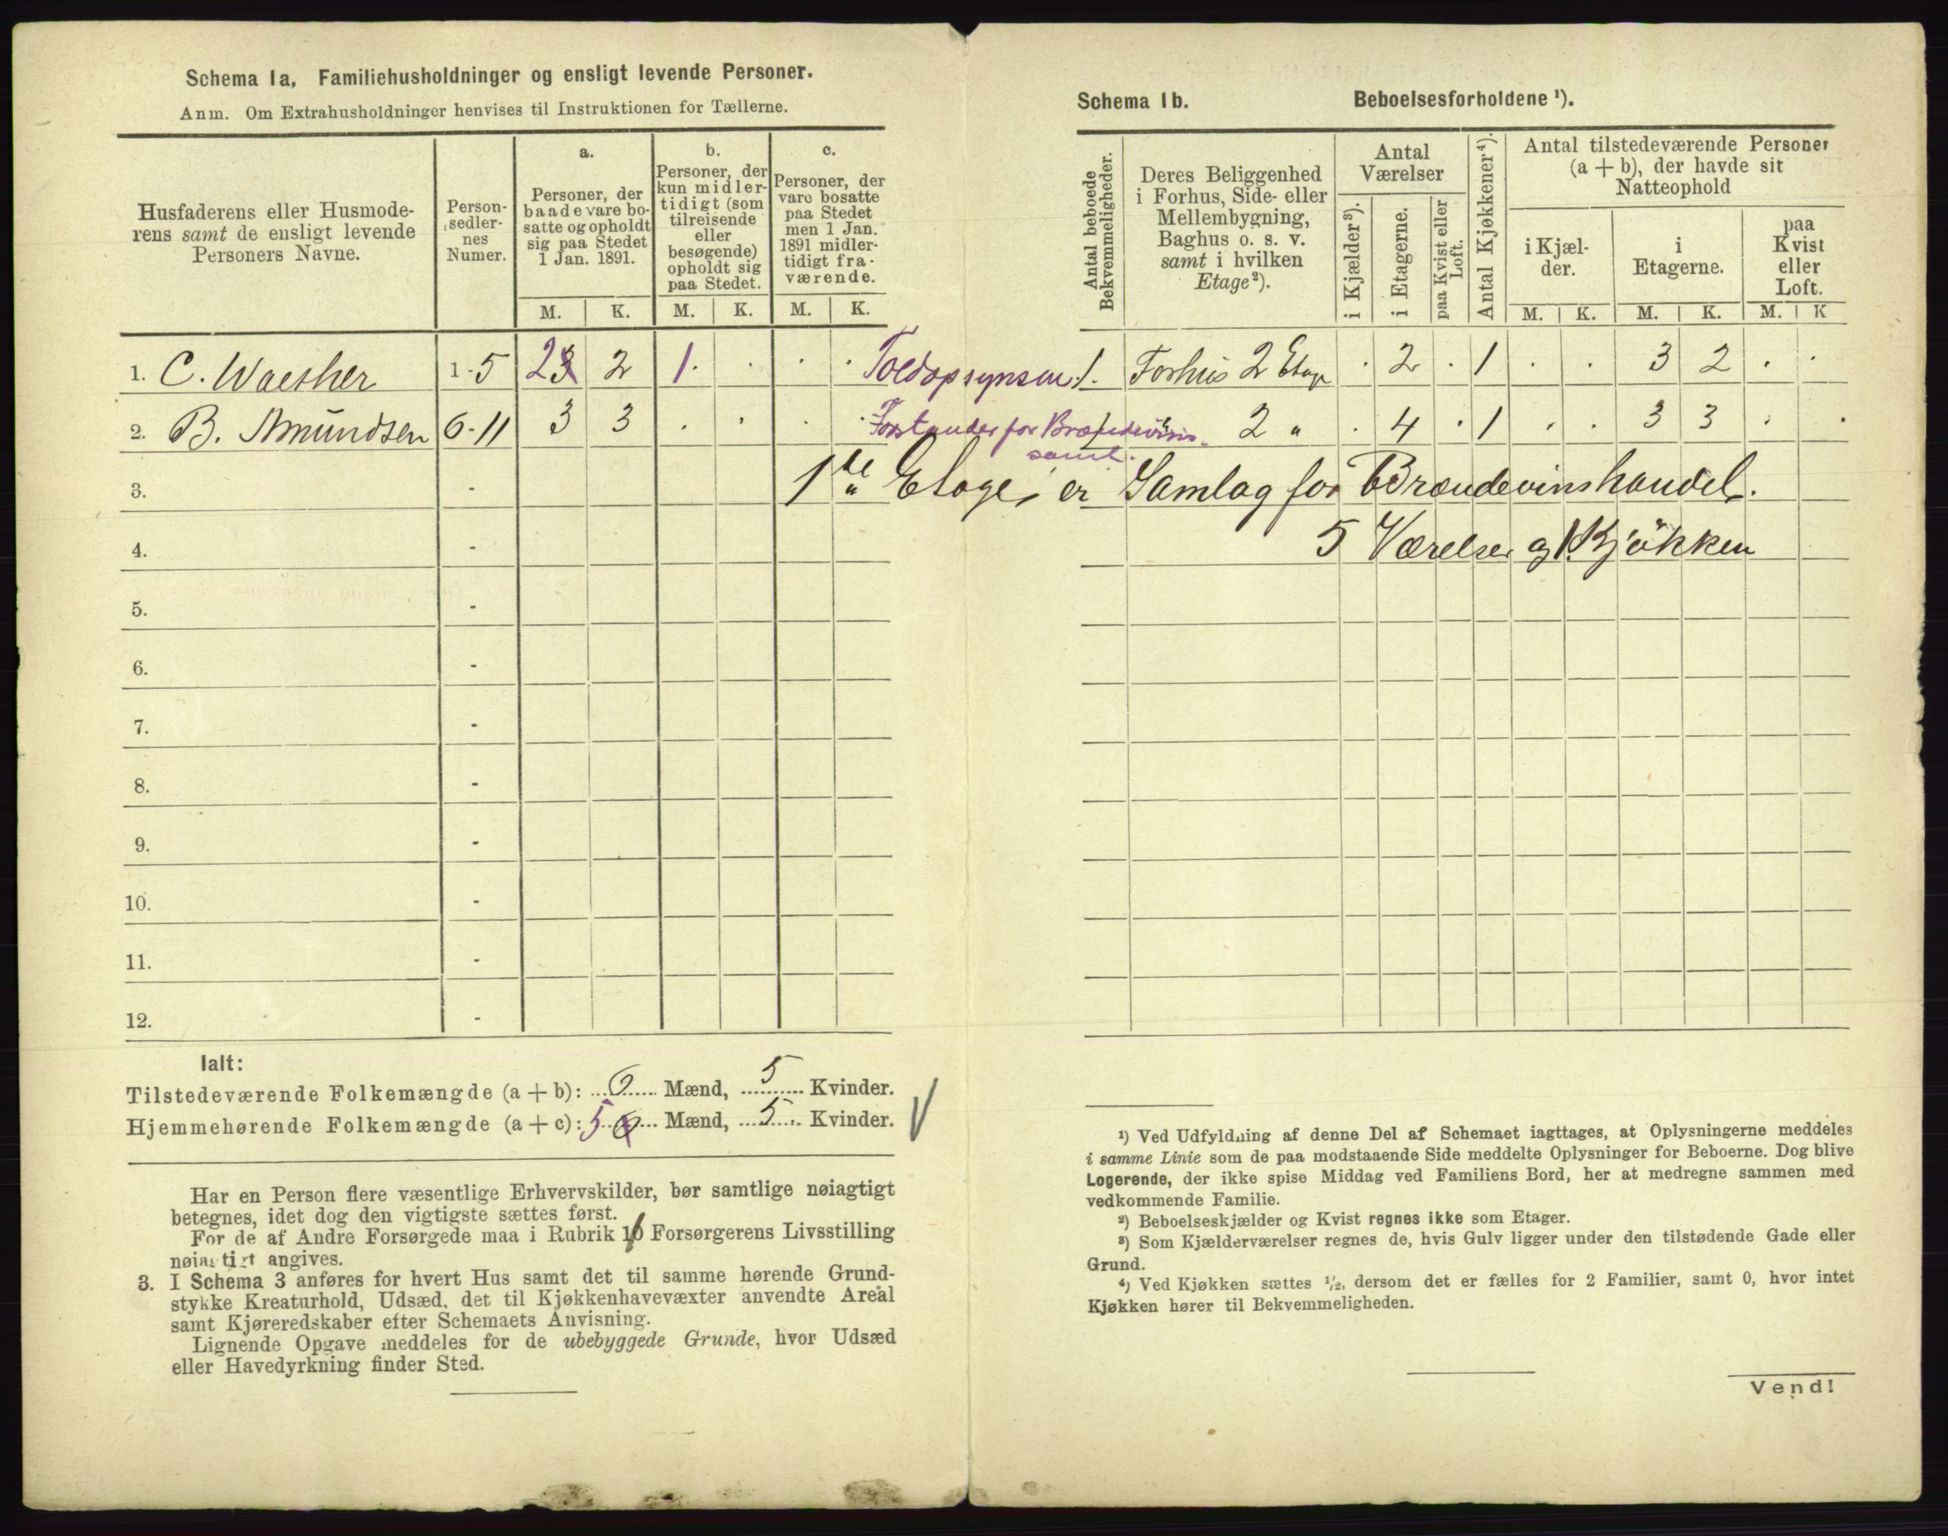 Schema 1a, Familiehusholdninger og ensligt levende Personer.
Anm. Om Extrahusholdninger henvises til Instruktionen for Tællerne.
Husfaderens eller Husmode-
rens samt de ensligt levende
Personers Navne.
Person-
sedler-
nes
Numer.
a.
Personer, der
baade vare bo-
satte og opholdt
sig paa Stedet
1 Jan. 1891.
b.
Personer, der
kun midler-
tidigt (som
tilreisende
eller
besøgende)
opholdt sig
paa Stedet.
c.
Personer, der
vare bosatte
paa Stedet
men 1 Jan.
1891 midler-
tidigt fra-
værende.
M. K. M. K. M. K.
1. C. Waesher 1-5 2 3 2 1 . . . . Toldopsynsm.
2. B. Amundsen 6-11 3 3 . . . . Forstander for Brændevins-
saml.
3. 1ste Etage, er Samlag for Brændevinshandel.
4. - 5 Værelser og 1 Kjøkken
5. -
6. -
7. -
8. -
9. -
10. -
11. -
12. -
Ialt:
Tilstedeværende Folkemængde (a + b): 6 Mænd, 5 Kvinder.
Hjemmehørende Folkemængde (a + c): 5 6 Mænd, 5 Kvinder.
Har en Person flere væsentlige Erhvervskilder, bør samtlige nøiagtigt
betegnes, idet dog den vigtigste sættes først.
For de af Andre Forsørgede maa i Rubrik 10 Forsørgerens Livsstilling
nøiagtigt angives.
3. I Schema 3 anføres for hvert Hus samt det til samme hørende Grund-
stykke Kreaturhold, Udsæd, det til Kjøkkenhavevæxter anvendte Areal
samt Kjøreredskaber efter Schemaets Anvisning.
Lignende Opgave meddeles for de ubebyggede Grunde, hvor Udsæd
eller Havedyrkning finder Sted.
Schema 1b. Beboelsesforholdene ¹).
Antal beboede
Bekvemmeligheder.
Deres Beliggenhed
i Forhus, Side- eller
Mellembygning,
Baghus o. s. v.
samt i hvilken
Etage²).
Antal
Værelser
i Kjælder³).
i Etagerne.
paa Kvist eller
Loft.
Antal Kjøkkener⁴).
Antal tilstedeværende Personer
(a + b), der havde sit
Natteophold
i Kjæl-
der.
i
Etagerne.
paa
Kvist
eller
Loft.
M. K. M. K. M. K
1. Forhus 2 Etage . 2 . 1 . . 3 2 . .
2 " . 4 . 1 . . 3 3 . .
¹) Ved Udfyldning af denne Del af Schemaet iagttages, at Oplysningerne meddeles
i samme Linie som de paa modstaaende Side meddelte Oplysninger for Beboerne. Dog blive
Logerende, der ikke spise Middag ved Familiens Bord, her at medregne sammen med
vedkommende Familie.
²) Beboelseskjælder og Kvist regnes ikke som Etager.
³) Som Kjælderværelser regnes de, hvis Gulv ligger under den tilstødende Gade eller
Grund.
⁴) Ved Kjøkken sættes ¹/₂, dersom det er fælles for 2 Familier, samt 0, hvor intet
Kjøkken hører til Bekvemmeligheden.
Vend!